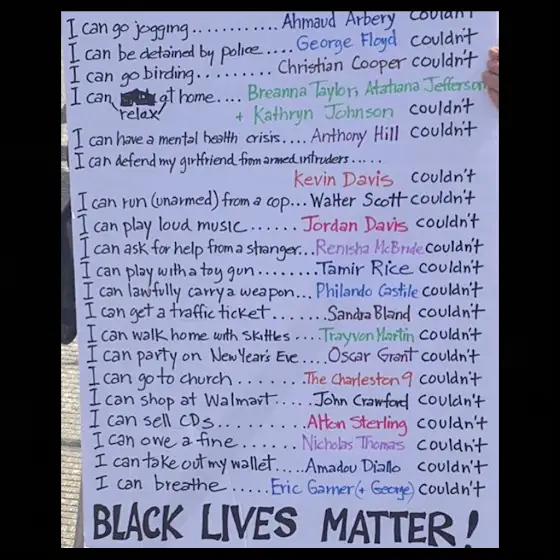 I can go jogging............ Ahmaud Arbery couldn't
I can be detained by police.... George Floyd couldn't
I can go birding......... Christian Cooper couldn't
I can relax at home.... Breanna Taylor, Atahana Jefferson
+ Kathryn Johnson couldn't
I can have a mental health crisis.... Anthony Hill couldn't
I can defend my girlfriend from armed intruders.....
Kevin Davis couldn't
I can run (unarmed) from a cop... Walter Scott couldn't
I can play loud music...... Jordan Davis couldn't
I can ask for help from a stranger... Renisha McBride couldn't
I can play with a toy gun........ Tamir Rice couldn't
I can lawfully carry a weapon... Philando Castile couldn't
I can get a traffic ticket....... Sandra Bland couldn't
I can walk home with skittles..... Trayvon Martin couldn't
I can party on New Year's Eve.... Oscar Grant couldn't
I can go to church....... The Charleston 9 couldn't
I can shop at Walmart..... John Crawford couldn't
I can sell CDs......... Alton Sterling couldn't
I can owe a fine...... Nicholas Thomas couldn't
I can take out my wallet.... Amadou Diallo couldn't
I can breathe..... Eric Garner (+ George) couldn't
BLACK LIVES MATTER!